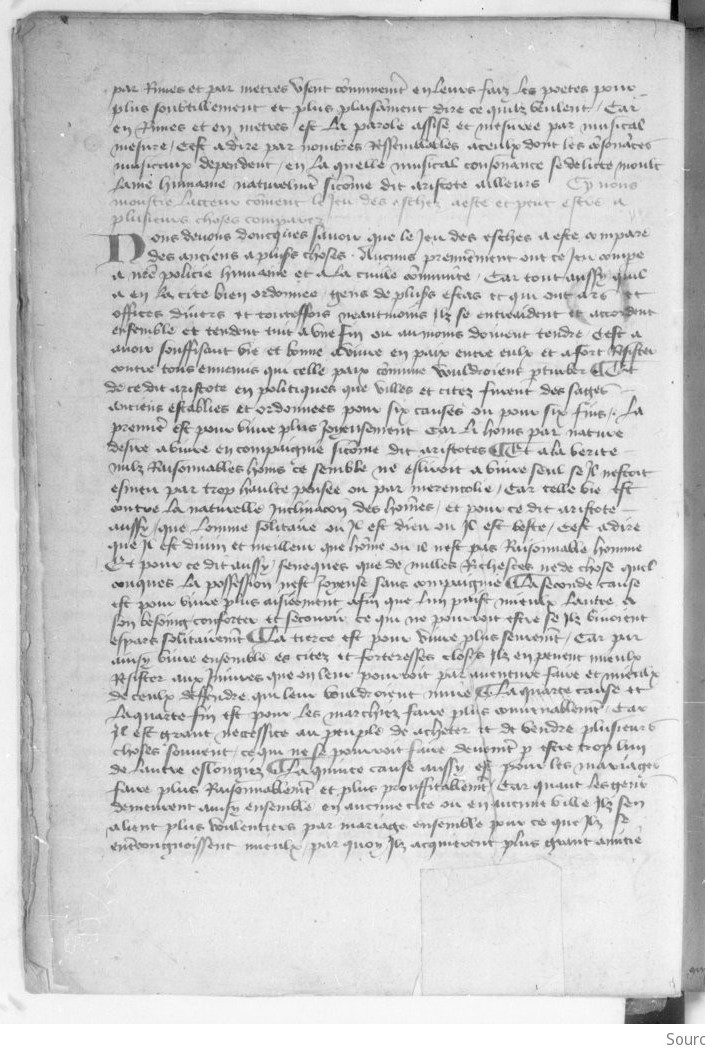 par Rimes et par metres Usent cōmunemēt en leurs faiz les poetes pour
plus soubtillement et plus plaisāment dire ce quilz veulent / Car
en Rimes et en metres est la parole assise et mesuree par musical
mesure / Cest adire par nombres Ressemblables a ceulx dont les cōsonāces
musicaux dependent / en la quelle musical consonance se delicte moult
lame humaine naturelmt sicōme dit aristote ailleurs Cy nous
monstre lacteur cōment le Jeu des eschez a este et peut estre a
plusieurs choses comparez
Nous deuons doncques sauoir que le Jeu des esches a este compare
des anciens a plusrs choses . Aucuns premieremēt ont ce Jeu compe
a nrē policie humaine et a la ciuile cōmunite / Car tout aussy quil
a en la cite bien ordonnee / gens de plusrs estas et qui ont ars et
offices diuers et toutesfois neantmoins Ilz se entraident et accordent
ensemble et tendent tuit a vne fin ou au moins doiuent tendre / cest a
auoir souffisant vie et bonne a viure en paix entre eulx et a fort Resister
contre tous ennemis qui celle paix cōmune vouldroient ptruber Et
de ce dit aristote en politiques que villes et citez furent des sages
anciens establies et ordonnees pour six causes ou pour six fins / La
premiē est pour viure plus Joyeusement Car li homs par nature
desire a viure en compaignie sicōme dit aristotes Et a la verite
nulz Raisonnables homs ce semble ne esliroit a viure seul se Il nestoit
esmeu par trop haulte pensee ou par merencolie / Car telle vie est
contre la naturelle Inclinacon des hōmes / et pour ce dit aristote
aussy / que lomme solitaire ou Il est dieu ou Il est beste / Cest adire
que Il est diuin et meilleur que hōme ou il nest pas Raisonnable homme
Et pour ce dit aussy / seneques que de nulles Richesces ne de chose quel
conques la possession nest Joyeuse sans compaignie La seconde cause
est pour viure plus aisieement afin que lun puist mieulx lautre a
son besoing conforter et secourir ce qui ne pourroit estre se Ilz viuoient
espars solitairemt La tierce est pour viure plus seuremt / Car par
ainsy viure ensemble es citez et forteresses closes Ilz en peuent mieulx
Resister aux Iniures que on leur pourroit par auenture faire et mieulx
de ceulx deffendre qui leur vouldroient nuire La quarte cause et
la quarte fin est pour les marchiez faire plus conuenablemt / Car
Il est grant necessite au peuple de acheter et de vendre plusieurs
choses souuent / ce qui ne se pourroit faire deuemt p estre trop lun
de lautre eslongiez La quinte cause aussy est pour les mariages
faire plus Raisonnablemt et plus prouffitablemt / Car quant les gens
demeurent ainsy ensemble en aucune cite ou en aucune ville Ilz sen
alient plus voulentiers par mariage ensemble pour ce que Ilz se
entrecongnoissent mieulx / par quoy Ilz acquierent plus grant amitie
Sourc